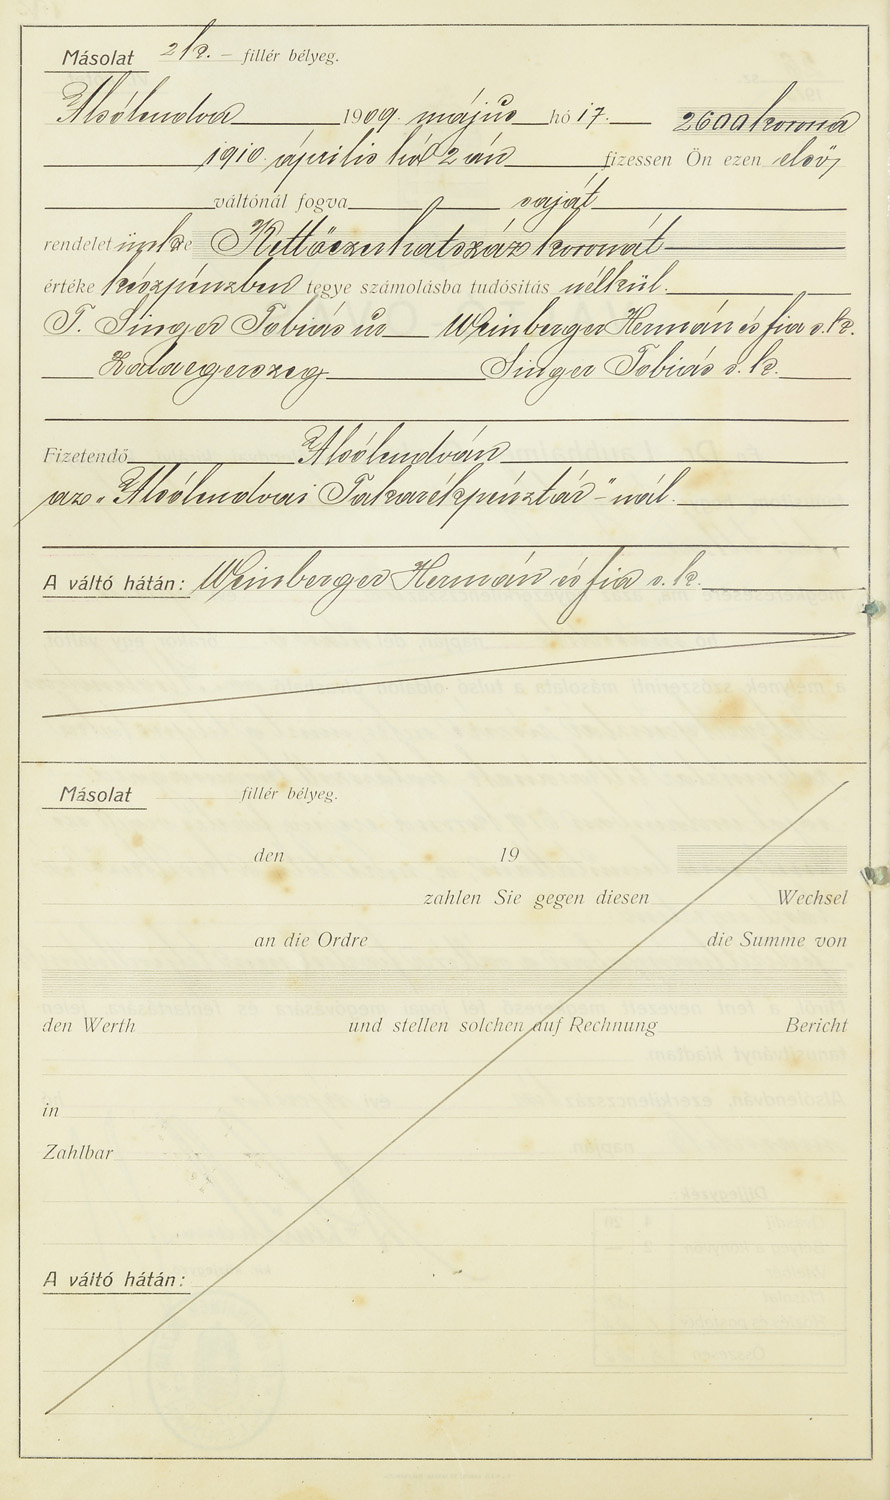 Másolat 2 k. – fillér bélyeg.
Alsólendva 1909. május hó 17. 2600 korona
1910. április hó 2 án fizessen Ön ezen első
váltónál fogva saját
rendelet ünkre Kettőezerhatszáz koronát
értéke készpénzben tegye számolásba tudósítás nélkül.
T. Singer Tobiás úr Weinberger Hermán és fia s. k.
Zalaegerszeg Singer Tobiás s. k.
Fizetendő Alsólendván
az „Alsólendvai Takarékpénztár"-nál.
A váltó hátán: Weinberger Hermán és fia s. k.
Másolat fillér bélyeg.
den 19
zahlen Sie gegen diesen Wechsel
an die Ordre die Summe von
den Werth und stellen solchen auf Rechnung Bericht
in
Zahlbar
A váltó hátán: